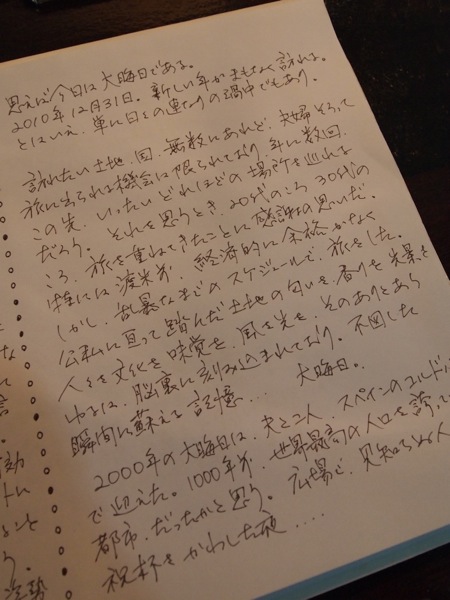 思えば今日は大晦日である。
2010年12月31日。新しい年がまもなく訪れる。
とはいえ、単に日々の連なりの渦中でもあり。
訪れたい土地、国、無数にあれど、夫婦そろって
旅に出られる機会は限られており、年に数回。
この先、いったいどれほどの場所を巡れる
だろう。それを思うとき、20代のころ、30代の
ころ、旅を重ねてきたことに感謝の思いだ。
特には渡米前、経済的に余裕がなく
しかし、乱暴なまでのスケジュールで、旅をした。
公私に亘って踏んだ土地の匂いを、香りを、光景を
人々を、文化を、味覚を、風を、光を、そのありとあら
ゆるは、脳裏に刻み込まれており、不図した
瞬間に蘇える記憶… 大晦日。
2000年の大晦日は、夫と二人、スペインのコルドバ
で迎えた。1000年前、世界最高の人口を誇って
都市、だったかと思う。広場で、見知らぬ人
祝杯をかわした夜....
な
て
言
効
トに
こと
う。
姿勢